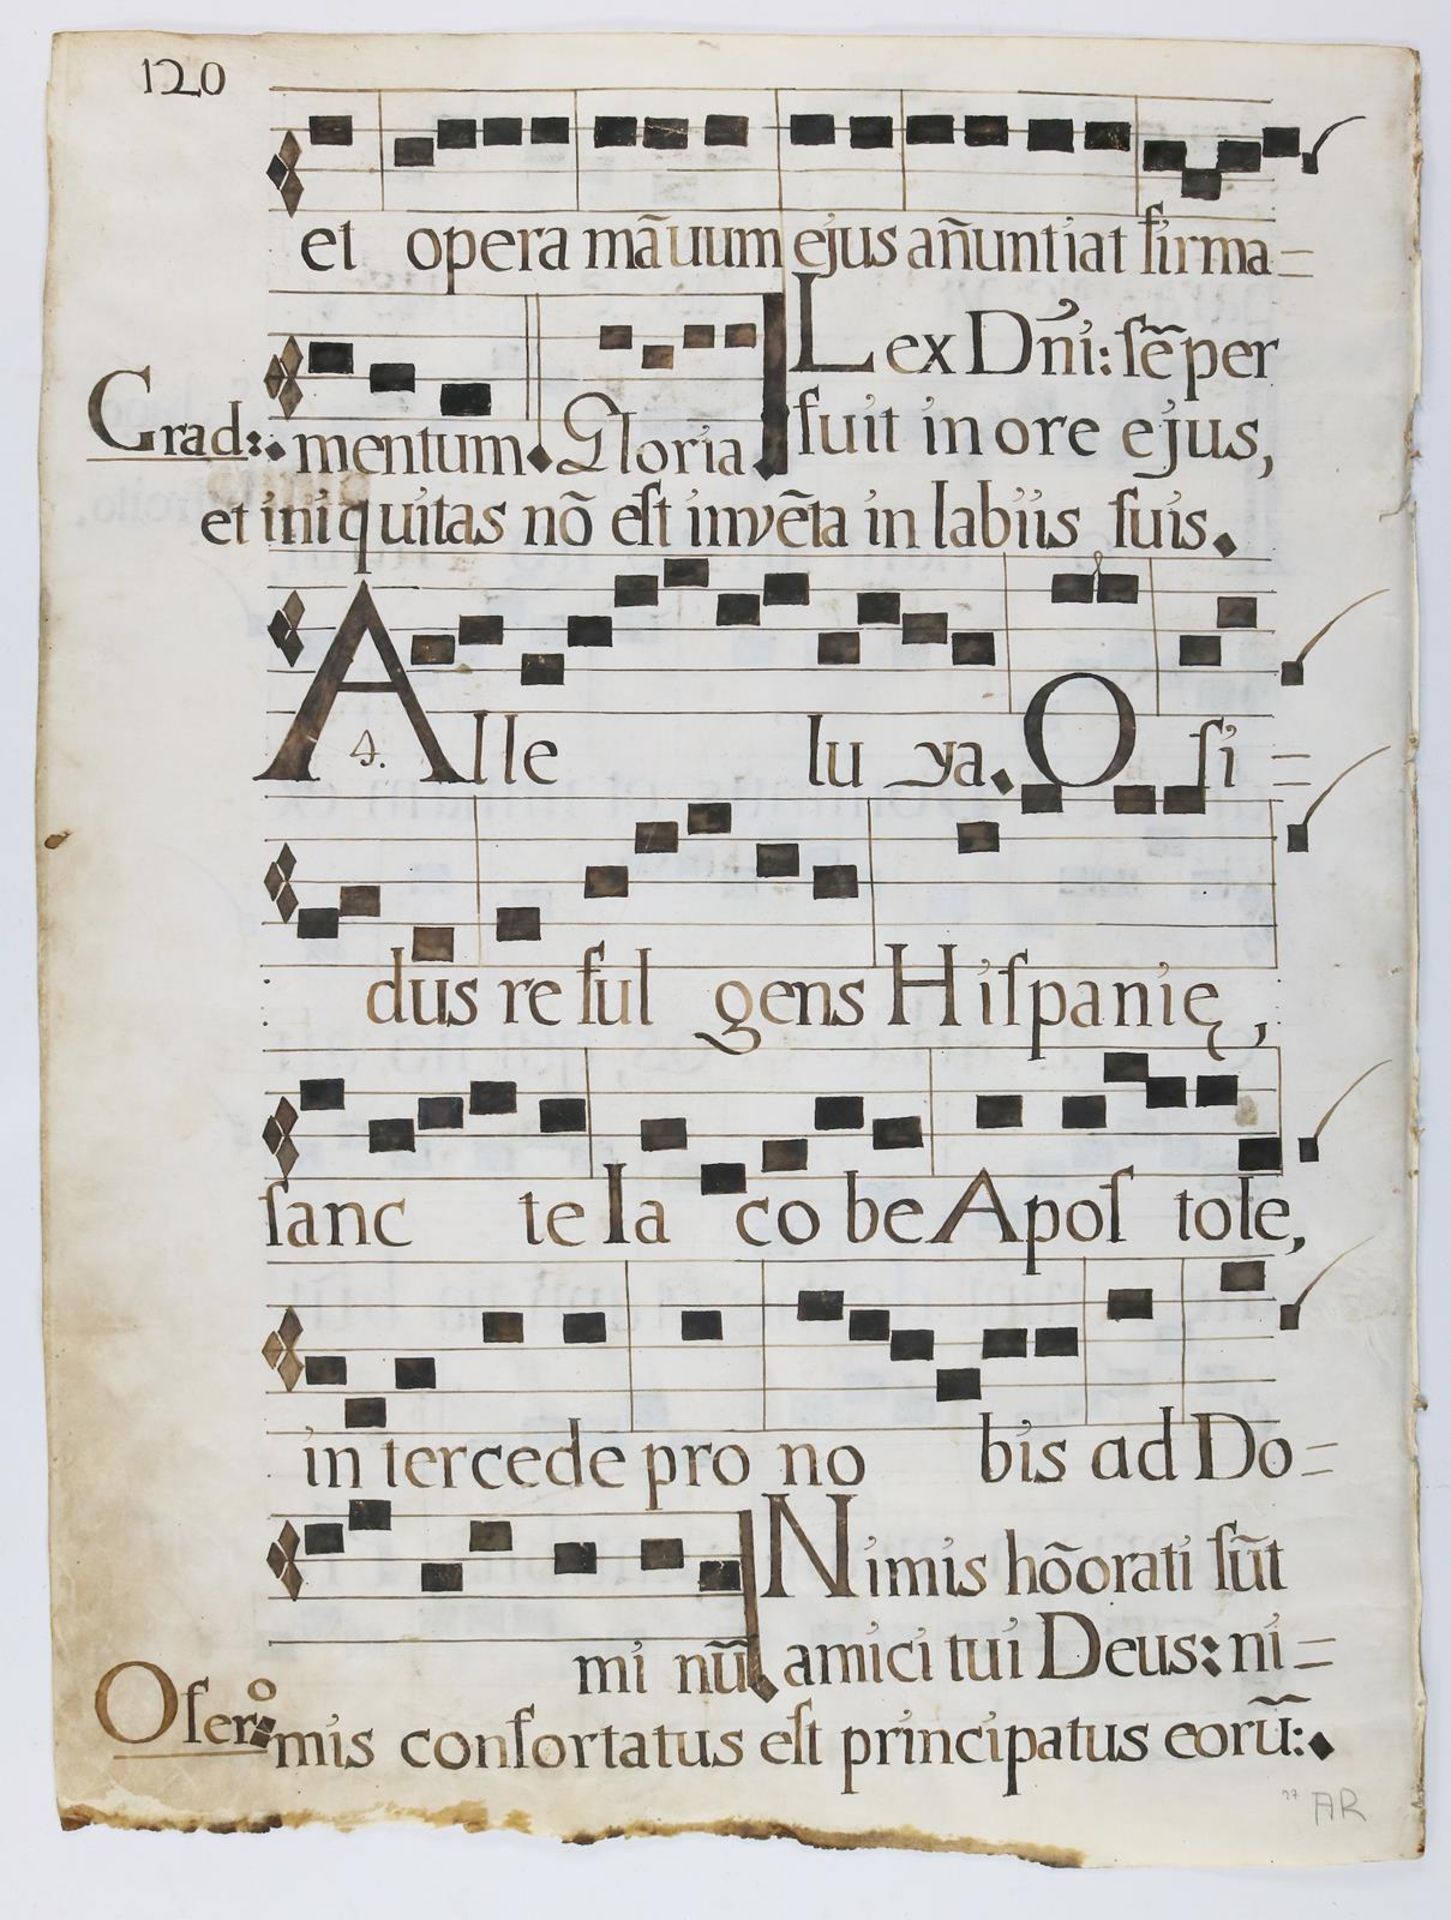 120
et opera mãuum ejus añuntiat firma=
Lex Dñi: sẽper
Grad: mentum. Gloria. fuit in ore ejus,
et iniquitas nõ est invẽta in labiis suis.
Alleluya. O si=
4.
dus reful gens Hispanię,
sanc te Iacobe Apostole,
intercede pro nobis ad Do=
Nimis hõorati sũt
mi nũ amici tui Deus: ni=
Ofer.º mis confortatus est principatus eorũ:
27 AR